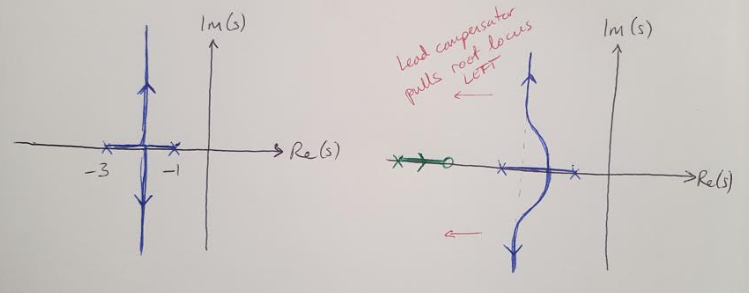 Im(s)
Re(s)
-3
-1
Lead compensator
pulls root locus
LEFT
Im(s)
Re(s)